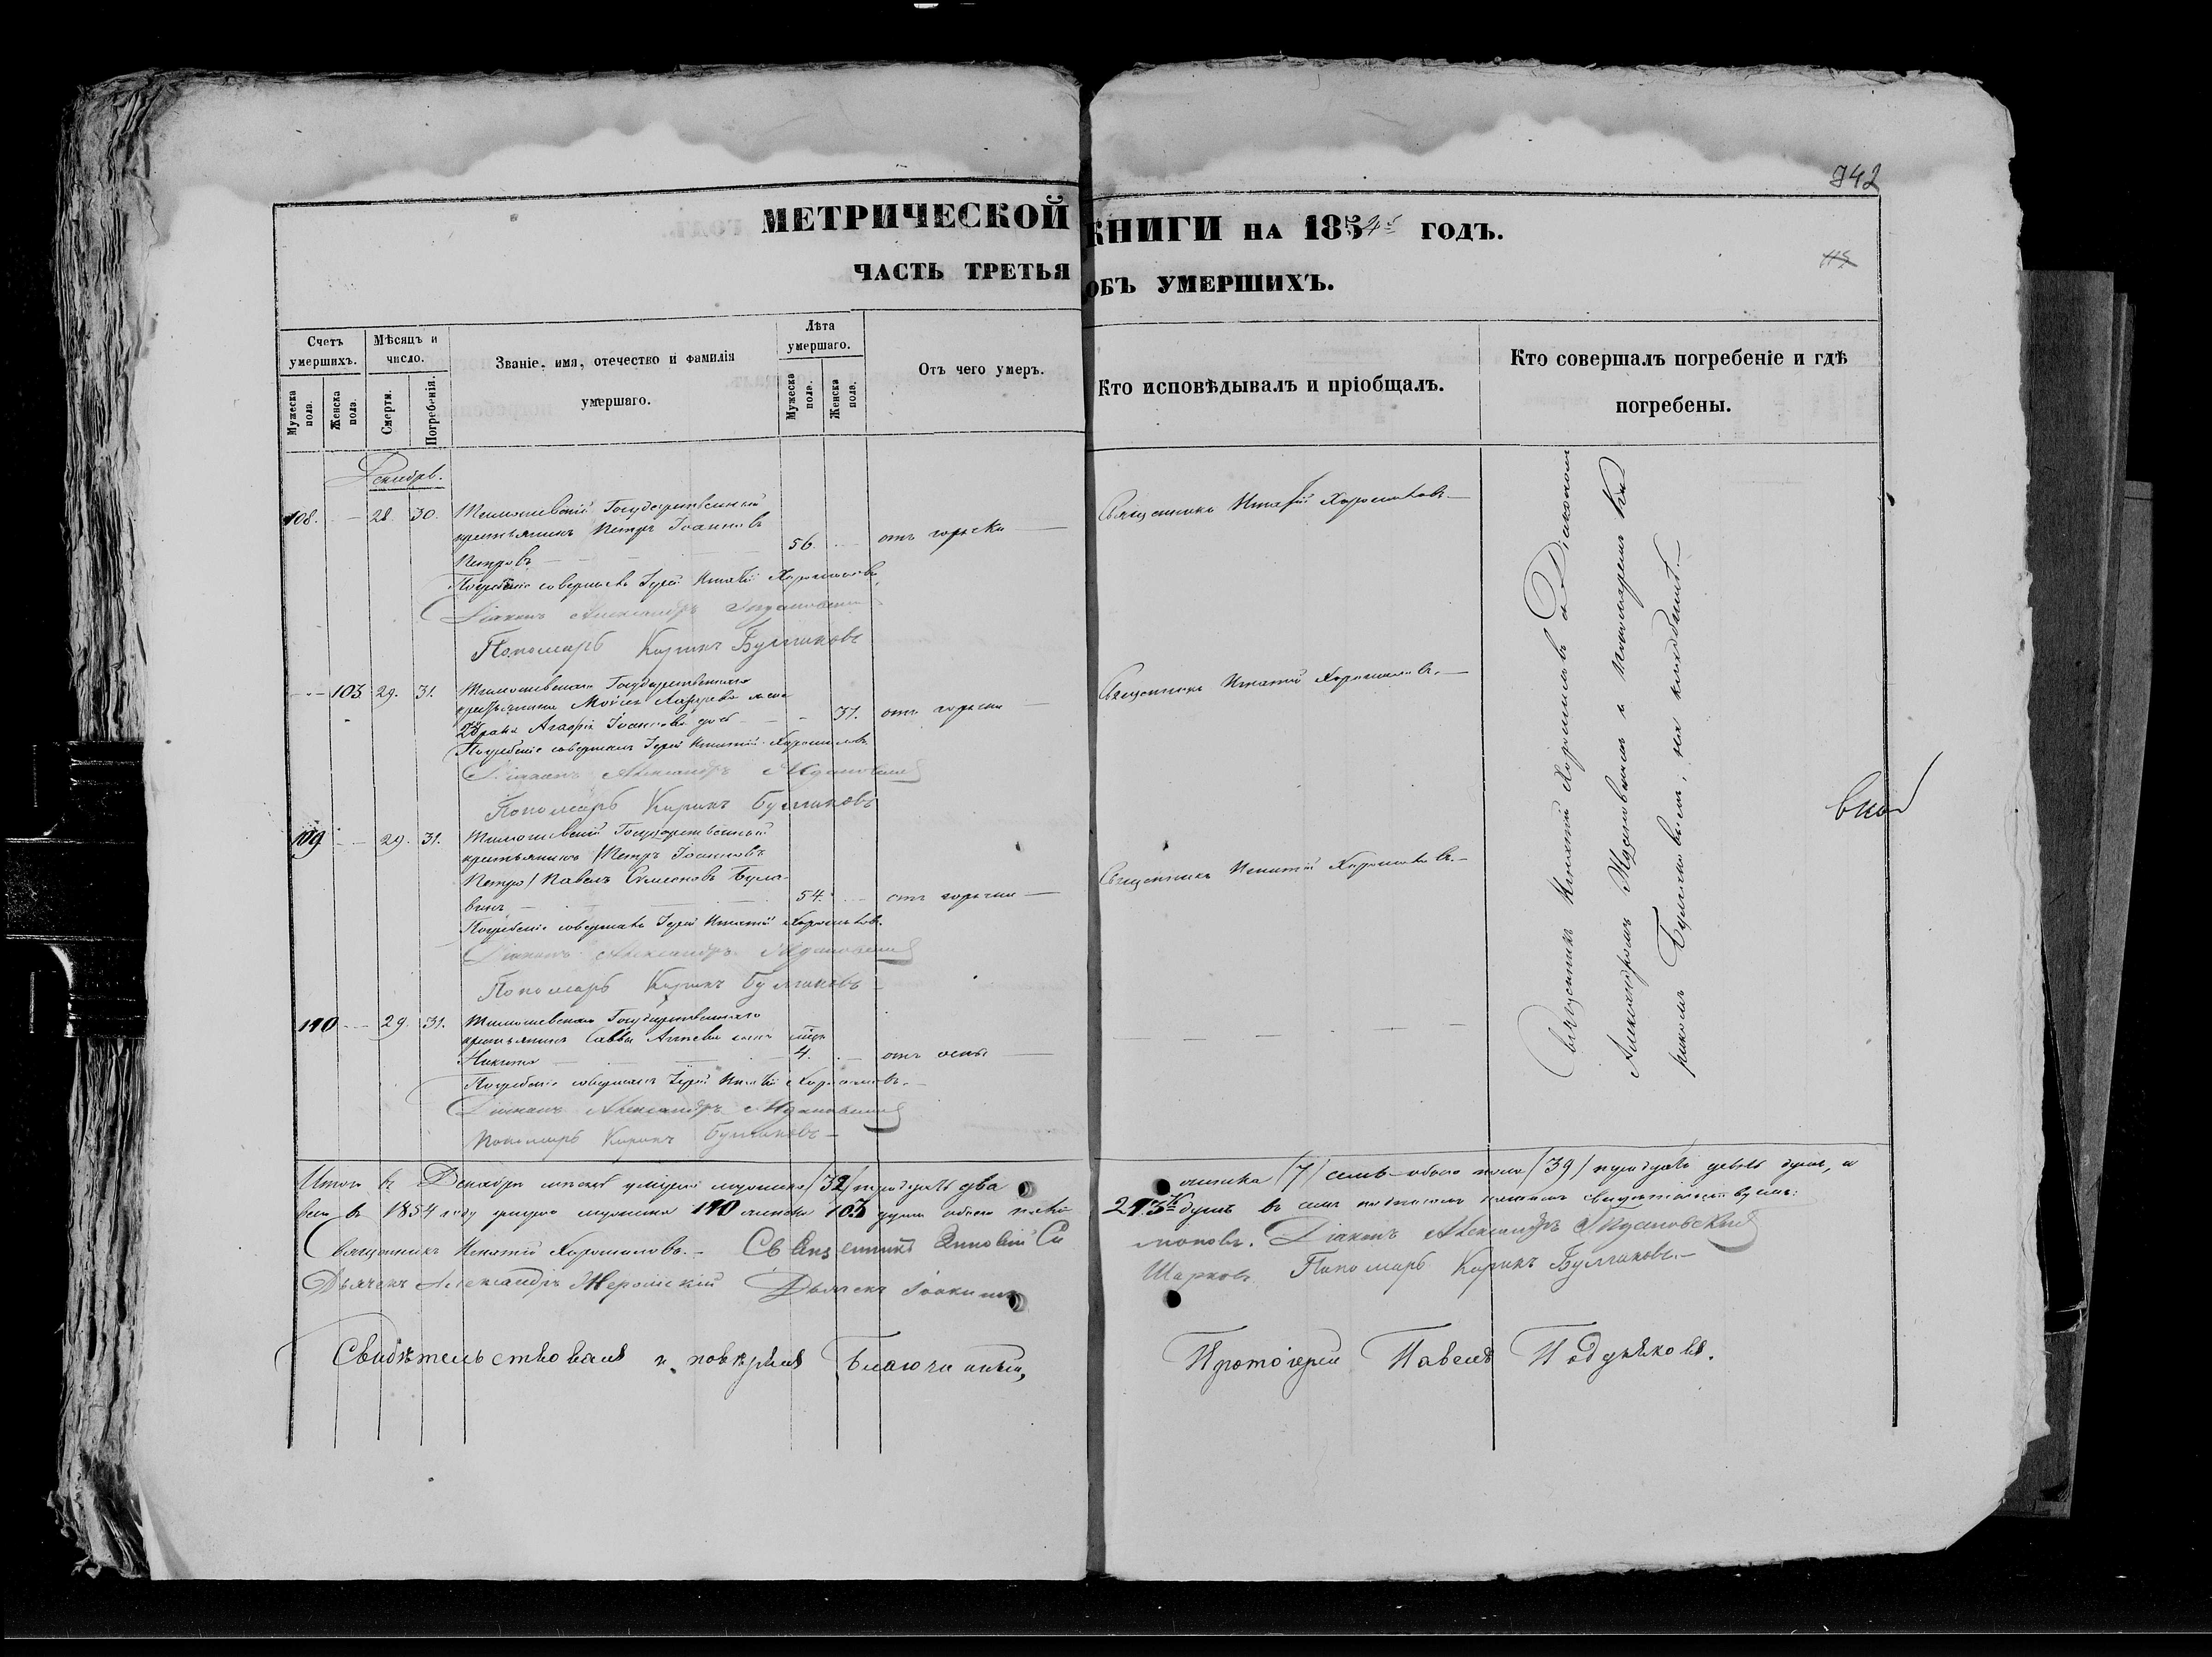 742
МЕТРИЧЕСКОЙ КНИГИ НА 1854й ГОДЪ.
ЧАСТЬ ТРЕТЬЯ ОБЪ УМЕРШИХЪ.
Счетъ умершихъ.
Мужеска пола.
Женска пола.
Мѣсяцъ и число.
Смерти.
Погребенія.
Званіе, имя, отечество и фамилія умершаго.
Лѣта умершаго.
Мужеска пола.
Женска пола.
Отъ чего умеръ.
Кто исповѣдывалъ и пріобщалъ.
Кто совершалъ погребеніе и гдѣ погребены.
Декабрь.
108. 28. 30. Государственный
крестьянинъ Петръ Іоанновъ
Петровъ 56. отъ горячки
Священникъ Игнатій Хорошиловъ
Погребеніе совершалъ Іерей Игнатій Хорошиловъ
Діаконъ Александръ
Пономарь Кирикъ Булгаковъ
103 29. 31. Государственнаго
крестьянина Моисея жена
Агафія Іоаннова 37. отъ горячки
Священникъ Игнатій Хорошиловъ.
Погребеніе совершалъ Іерей Игнатій Хорошиловъ
Діаконъ Александръ
Пономарь Кирикъ Булгаковъ
109 29. 31. Государственный
крестьянинъ /Петръ Іоанновъ
Петро/ Павелъ Симеоновъ
54. отъ горячки
Священникъ Игнатій Хорошиловъ.
Погребеніе совершалъ Іерей Игнатій Хорошиловъ.
Діаконъ Александръ
Пономарь Кирикъ Булгаковъ
110 29. 31. Государственнаго
крестьянина Саввы сынъ
Никита 4. отъ оспы
Погребеніе совершалъ Іерей Игнатій Хорошиловъ.
Діаконъ Александръ
Пономарь Кирикъ Булгаковъ
Священникъ Игнатій Хорошиловъ съ Діакономъ
Александромъ и пономаремъ Ки
рикомъ Булгаковымъ, на кладбищѣ.
Итого въ Декабрѣ мѣсяцѣ умерло мужеска /32/ тридцать два
женска /7/ семь обоего пола /39/ тридцать девять душъ, а
всего въ 1854 году умерло мужеска 110 женска 103 души обоего пола
213 душъ въ чемъ подписомъ нашимъ свидѣтельствуемъ:
Священникъ Игнатій Хорошиловъ. Священникъ Зиновій Си
моновъ. Діаконъ Александръ
Дьячекъ Александръ Дьячекъ Іоакимъ
Шарковъ Пономарь Кирикъ Булгаковъ.
Свидѣтельствовалъ и повѣрялъ Благочинный,
Протоіерей Павелъ